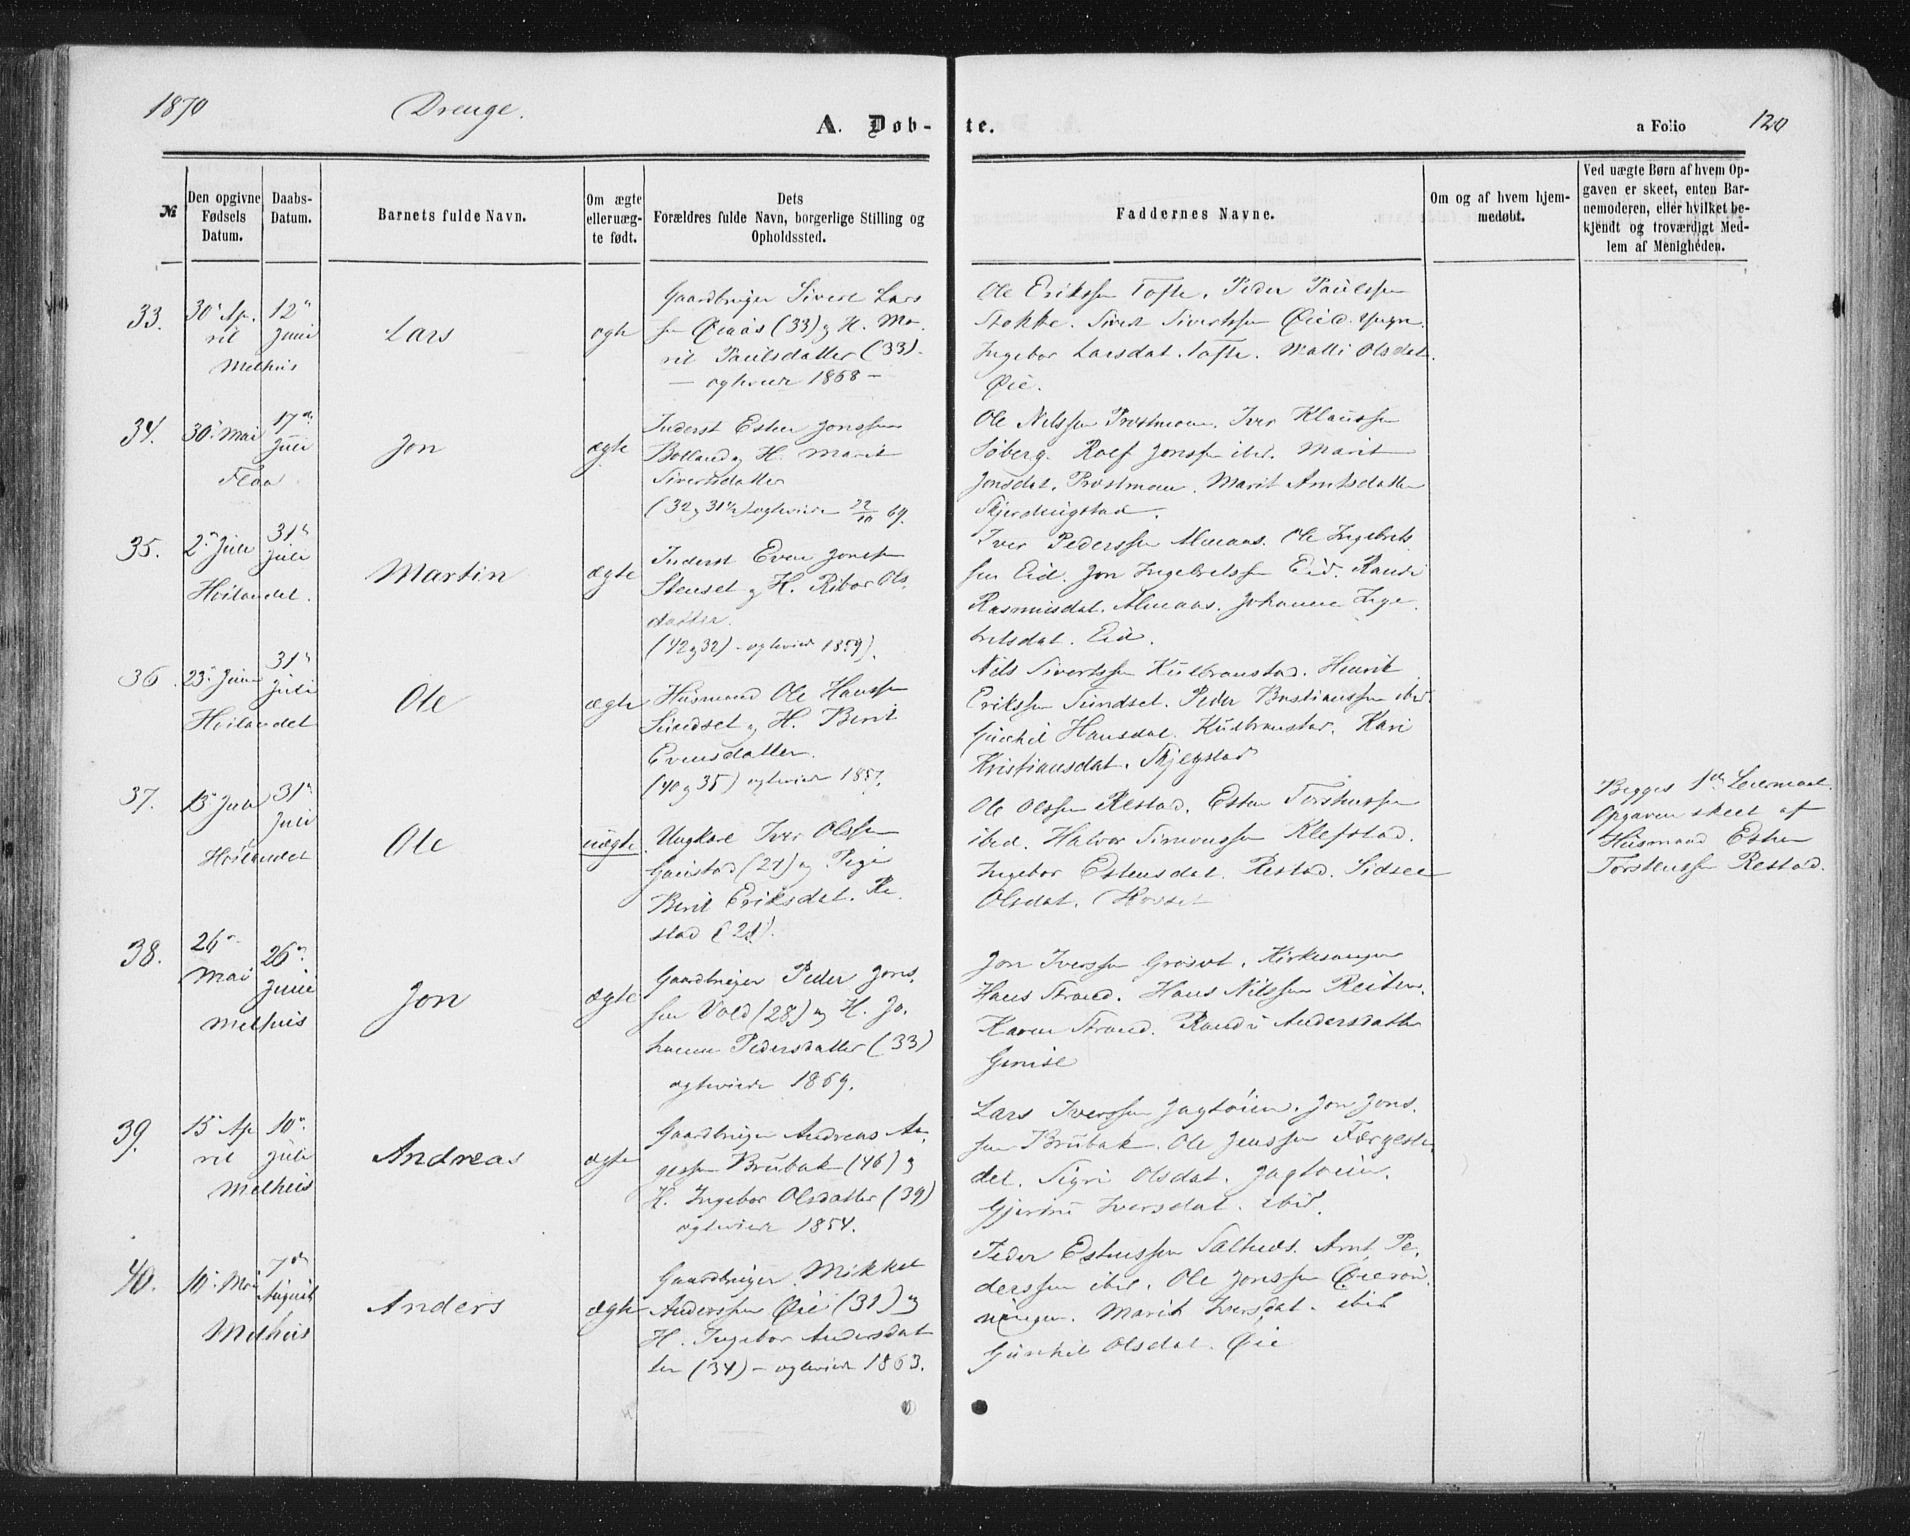 1870 Drenge.
A. Døb-
te.
a Folio 120
№
Den opgivne Fødsels Datum.
Daabs-Datum.
Barnets fulde Navn.
Om ægte elleruæg-te født.
Dets Forældres fulde Navn, borgerlige Stilling og Opholdssted.
Faddernes Navne.
Om og af hvem hjem-medøbt.
Ved uægte Børn af hvem Op-gaven er skeet, enten Bar-nemoderen, eller hvilket be-kjendt og troværdigt Med-lem af Menigheden.
33.
30 Ap-
ril
Melhus
12
Juni
Lars
ægte
Gaardbruger Sivert Lars
sen Øiaas (33) og H. Ma-
rit Paulsdatter (33)
- ægteviede 1868 -
Ole Erikssen Tofte. Peder Paulssen
Stokke. Sivert Sivertssen Øie
Ingebor Larsdat. Tofte. Malli Olsdat.
Øie.
34.
30 Mai
Flaa
17
Juli
Jon
ægte
Inderst Esten Jonssen
Bolland og H. Marit
Sivertsdatter
(32 og 31½) ægteviede 22/10 69.
Ole Nilssen Prostmoen. Iver Klaussen
Søberg. Rolf Jonssen ibd. Marit
Jonsdat. Prostmoen. Marit Arntsdatter
Skjerdingstad.
35.
2 Juli
Høilandet.
31
Juli
Martin
ægte
Inderst Even Jonssen
Stenset og H. Ribor Ols-
datter.
(42 og 32) - ægteviede 1859).
Iver Pederssen Almaas. Ole Ingebrets
sen Eid. Jon Ingebretssen Eid. Randi
Rasmusdat. Almaas. Johanne Inge-
bretsdat. Eid.
36.
23 Juni
Høilandet
31
Juli
Ole
ægte
Husmand Ole Hanssen
Sundset og H. Berit
Evensdatter.
(40 og 35) ægteviede 1857.
Nils Sivertssen Kulbranstad. Henrik
Erikssen Sundset. Peder Bastianssen ibid.
Gunhil Hansdat. Kulbranstad. Kari
Kristiansdat. Skjegstad
37.
13 Juli
Høilandet
31
Juli
Ole
uægte
Ungkarl Iver Olssen
Gaustad (21) og Pige
Berit Eriksdat. Re-
stad (21).
Ole Olssen Restad. Esten Torstenssen
ibid. Halvor Simonssen Klefstad.
Ingebor Estensdat. Restad. Sidsel
Olsdat. Hovset
Begges 1ste Leiermaal.
Opgaven skeet af
Husmand Esten
Torstenssen Restad.
38.
26
Mai
Melhus
26
Juni
Jon
ægte
Gaardbruger Peder Jons-
sen Vold (28) og H. Jo-
hanna Pedersdatter (33)
ægteviede 1869.
Jon Iverssen Gravot. Kirkesanger
Hans Strand. Hans Nilssen Reiten.
Karen Strand. Randi Andersdatter
Gimse
39.
15 Ap
ril
Melhus
10
Juli
Andreas
ægte
Gaardbruger Andreas Aa-
gessen Brubak (46) og
H. Ingebor Olsdatter (39)
ægteviede 1854.
Lars Iverssen Jagtøien. Jon Jons-
sen Brubak. Ole Jenssen Færgeste-
det. Sigri Olsdat. Jagtøien.
Gjertru Iversdat. ibid.
40.
10 Mai
Melhus
7de
August
Anders
ægte
Gaardbruger Mikkel
Anderssen Øie (31) og
H. Ingebor Andersdat
ter (34) - ægteviede 1863.
Peder Estenssen Salthus. Arnt Pe-
derssen ibid. Ole Jonssen Øierøn-
ningen. Marit Iversdat. ibid
Gunhil Olsdat. Øie